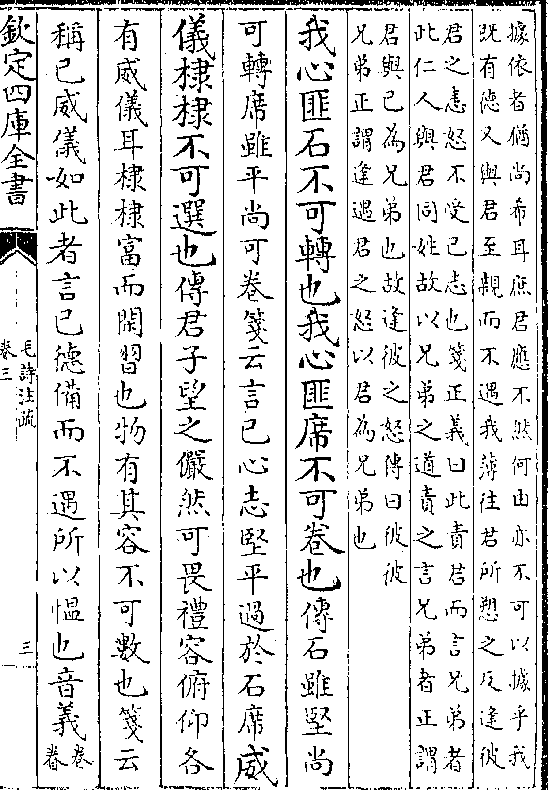 據依者猶尚希耳庶君應不然何由亦不可以據乎我
既有德又與君至親而不遇我薄往君所愬之反逢彼
君之恚怒不受已志也箋正義曰此責君而言兄弟者
此仁人與君同姓故以兄弟之道責之言兄弟者正謂
君與已為兄弟也故逢彼之怒傳曰彼彼
兄弟正謂逢遇君之怒以君為兄弟也
我心匪石不可轉也我心匪席不可卷也傳石雖堅尚
可轉席雖平尚可卷箋云言已心志堅平過於石席威
儀棣棣不可選也傳君子望之儼然可畏禮容俯仰各
有威儀耳棣棣富而閑習也物有其容不可數也箋云
稱已威儀如此者言已德備而不遇所以愠也音義卷
眷
欽定四庫全書
毛詩注疏
卷三
三